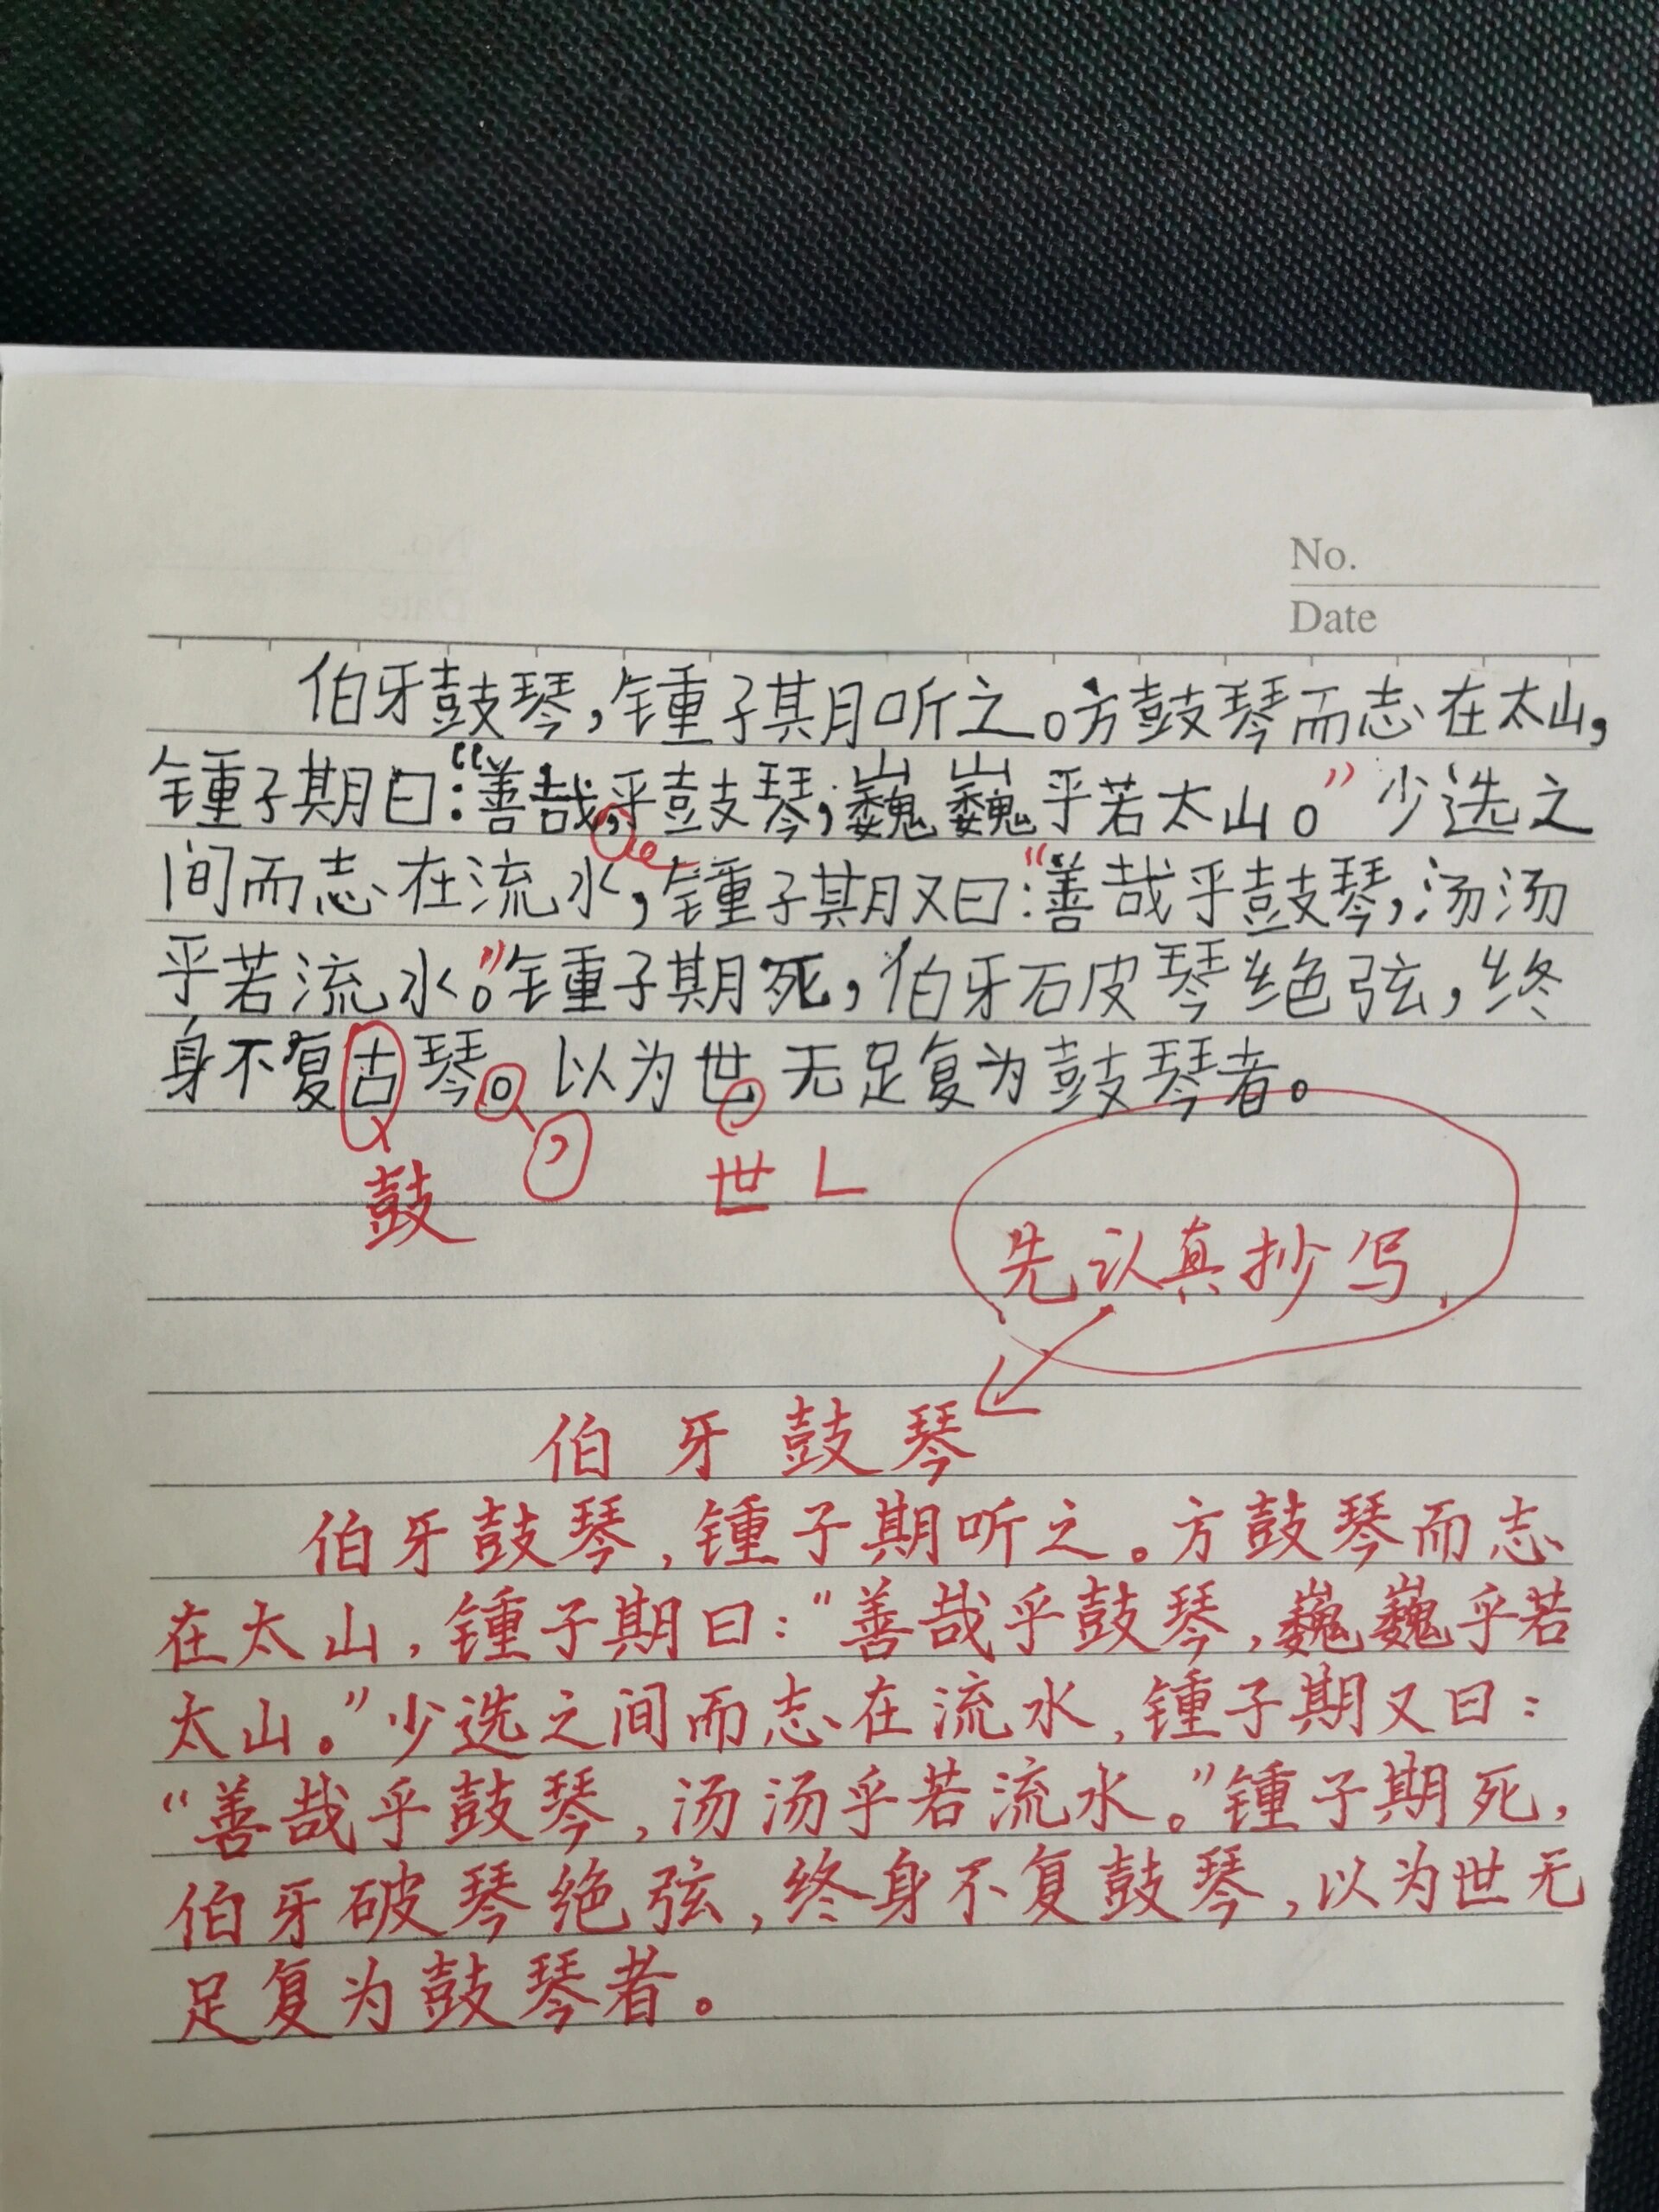 No.
Date
伯牙鼓琴,锺子其月听之。方鼓琴而志在太山,
锺子期曰:“善哉,乎鼓琴,巍巍乎若太山。”少选之
间而志在流水,锺子期又曰:“善哉乎鼓琴,汤汤
乎若流水。”锺子期死,伯牙破琴绝弦,终
身不复古琴。以为世无足复为鼓琴者。
鼓 , 世 ㄴ
先认真抄写
伯牙鼓琴
伯牙鼓琴,锺子期听之。方鼓琴而志
在太山,锺子期曰:“善哉乎鼓琴,巍巍乎若
太山。”少选之间而志在流水,锺子期又曰:
“善哉乎鼓琴,汤汤乎若流水。”锺子期死,
伯牙破琴绝弦,终身不复鼓琴,以为世无
足复为鼓琴者。